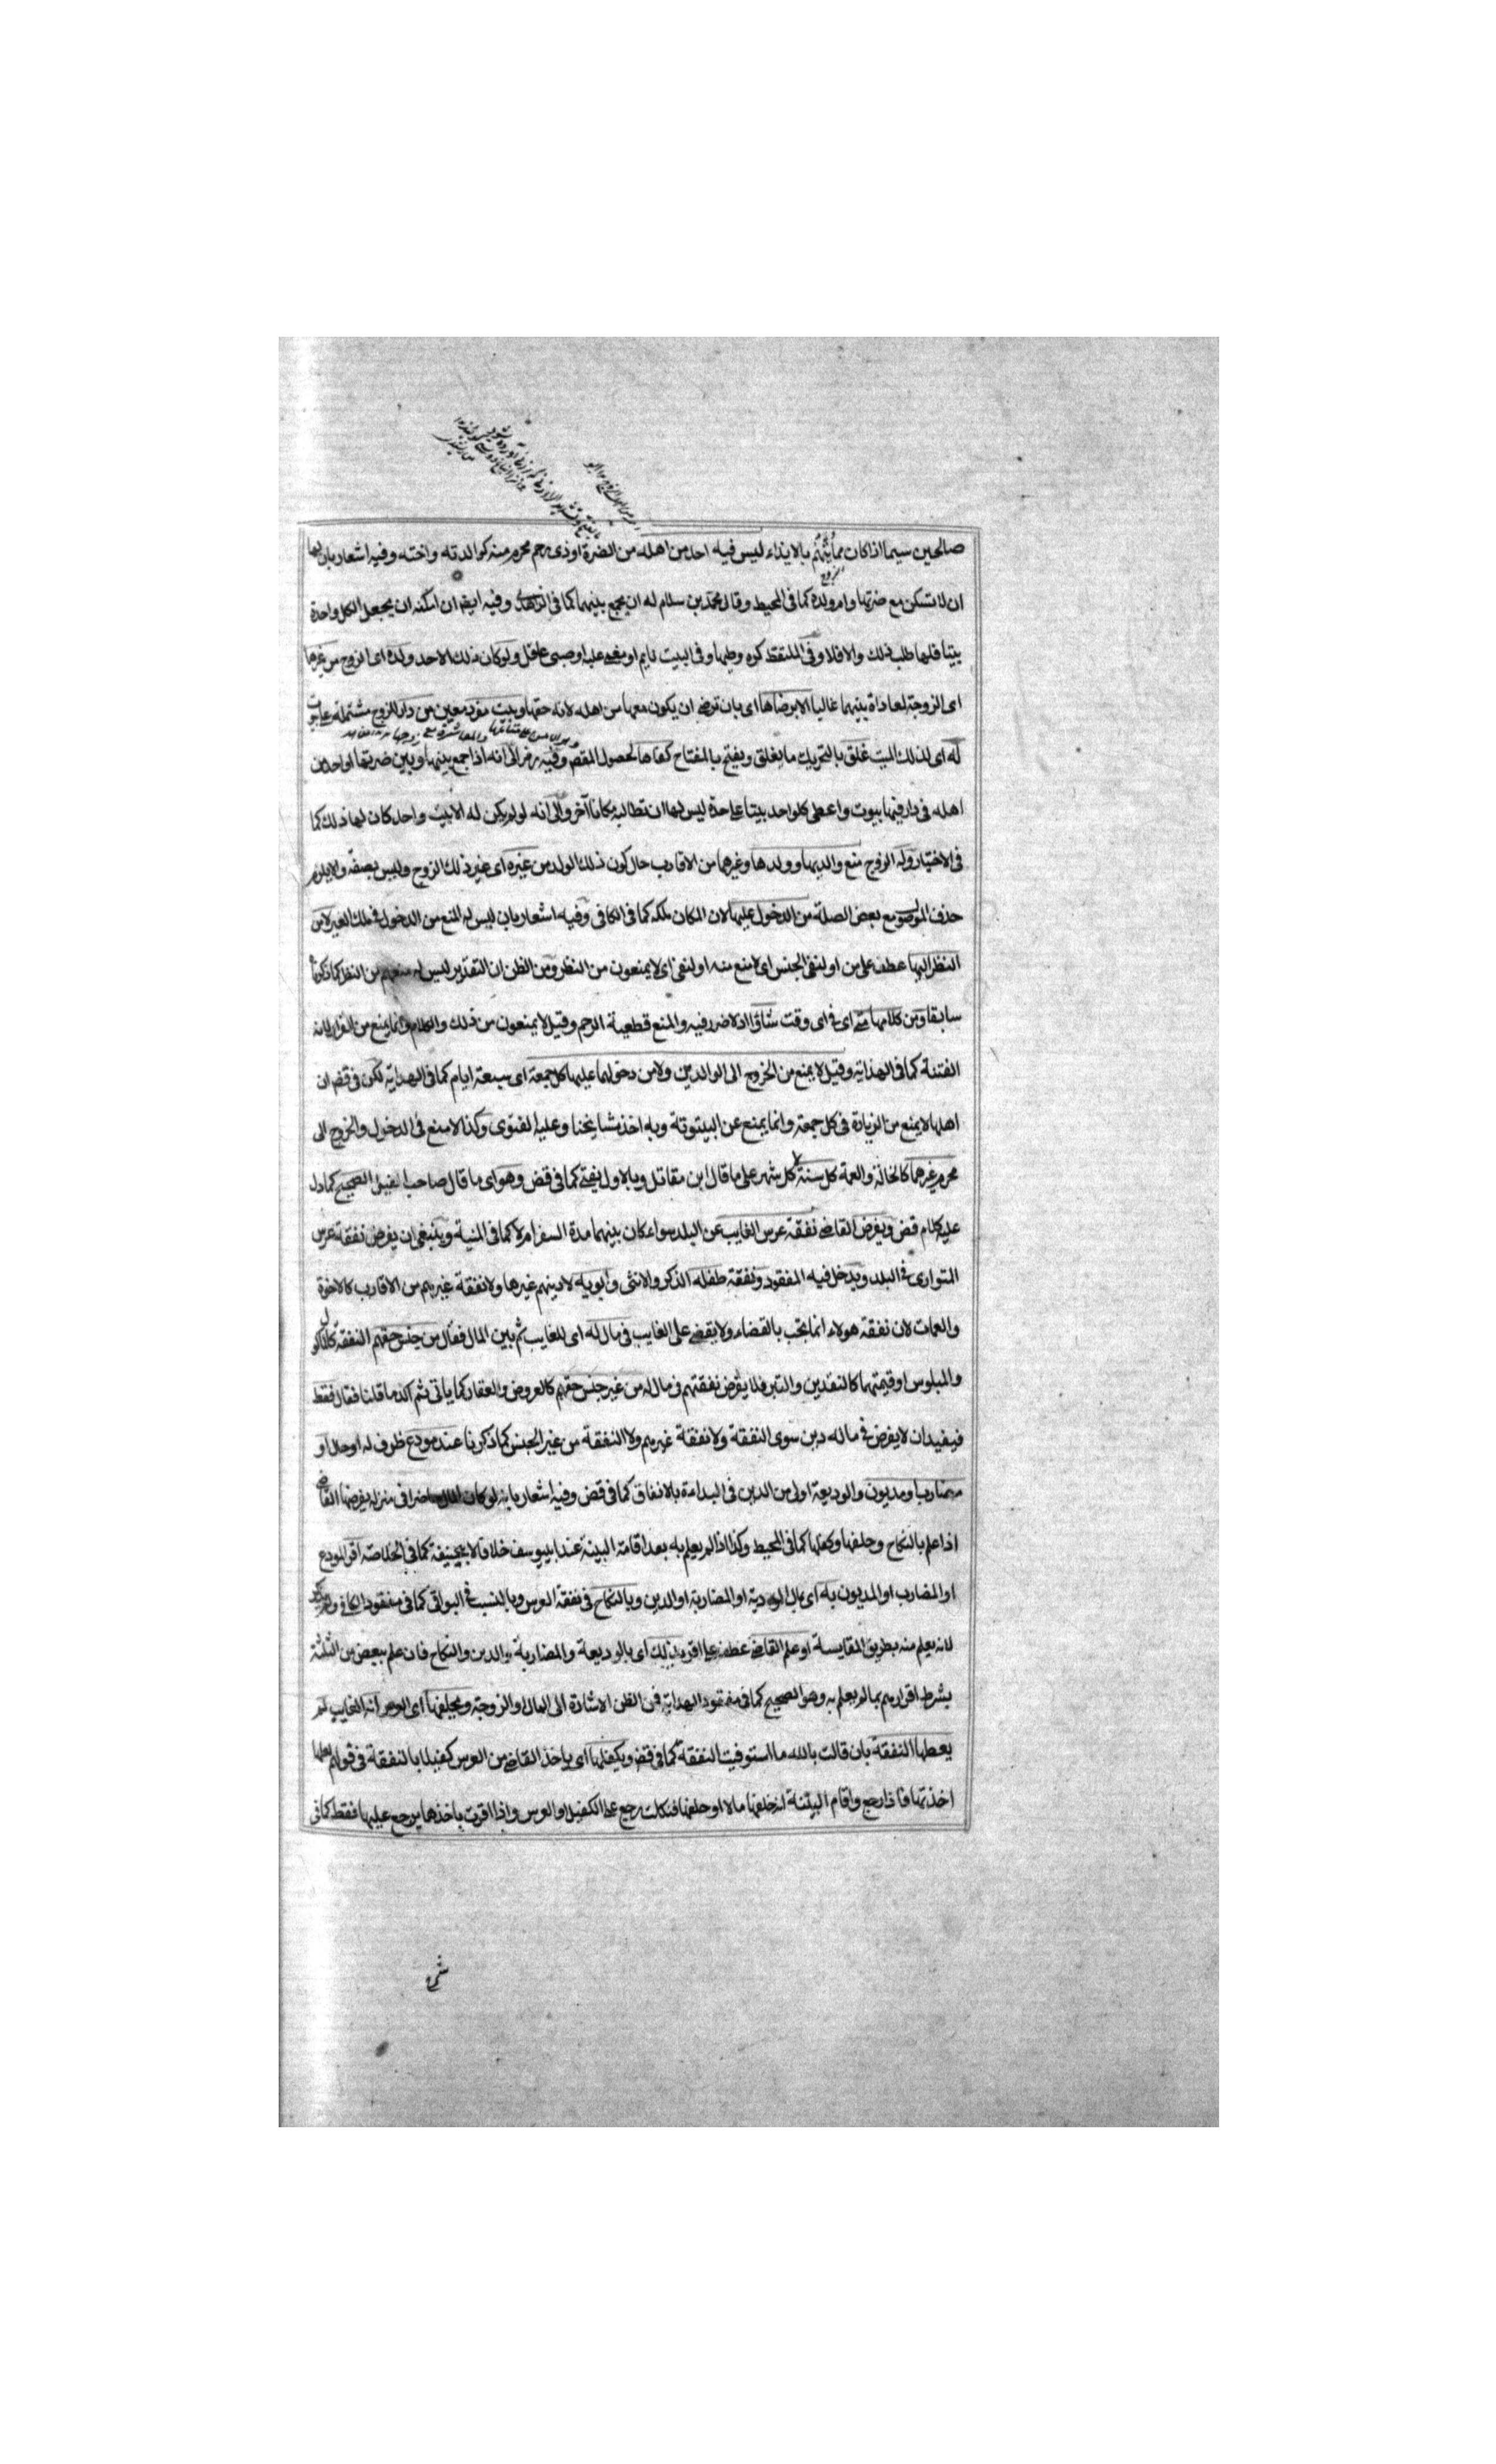 صالحين سيما اذا كان ممايتهم بالايذاء ليس فيه احد من اهله من الضرة او ذى رحم محرم منه كوالدته واخته وفيه اشعار بان لها
ان لا تسكن مع ضرتها وام ولده كما فى المحيط وقال محمد بن سلام له ان يجمع بينهما كما فى الزاهدى وفيه ايضا ان امكنه ان يجعل لكل واحدة
بيتا فلها طلب ذلك والا فلا وفى الملتقط كره وطيها وفى البيت نايم او مغمى عليه او صبى عاقل ولو كان ذلك الاحد ولده اى الزوج من غيرها
اى الزوجة لمعاداة بينهما غالبا الا برضاها اى بان ترضى ان يكون معها من اهله لانه حقها وبيت مفرد معين من دار للزوج مشتملة على بيوت
له اى لذلك البيت غلق بالتحريك ما يغلق ويفتح بالمفتاح كفاها لحصول المقصو وفيه رمز الى انه اذا جمع بينها وبين ضرتها او احد من
اهله فى دار فيها بيوت واعطى كل واحد بيتا على حدة ليس لها ان تطالبه مكانا آخر والى انه لو لم يكن له الا بيت واحد كان لها ذلك كما
فى الاختيار وله الزوج منع والديها وولدها وغيرهما من الاقارب حال كون ذلك الولد من غيره اى غير ذلك الزوج وليس بصفة والا يلزم
حذف الموصو مع بعض الصلة من الدخول عليها لان المكان ملكه كما فى الكافى وفيه اشعار بان ليس له المنع من الدخول فى ملك الغير لا من
النظر اليها عطف على من او لنفى الجنس اى لا منع منه او لنفى اى لا يمنعون من النظر ومن الظن ان التقدير ليس له منعهم من النظر كما ذكرنا
سابقا ومن كلامها متى اى فى اى وقت شاؤا اذ لا ضرر فيه والمنع قطعية الرحم وقيل لا يمنعون من ذلك والكلام وانما يمنع من القرار لانه
الفتنة كما فى الهداية وقيل لا يمنع من الخروج الى الوالدين ولا من دخولهما عليها كل جمعة اى سبعة ايام كما فى الهداية لكن فى قض ان
اهلها لا يمنع من الزيارة فى كل جمعة وانما يمنع عن البيتوتة وبه اخذ مشايخنا وعليه الفتوى وكذا لا منع فى الدخول والخروج الى
محرم غيرهما كالخالة والعمة كل سنة كل شهر على ما قال ابن مقاتل وبالاول يفتى كما فى قض وهو اى ما قال صاحب القيل الصحيح كما دل
عليه كلام قض ويفرض القاضى نفقة عرس الغايب عن البلد سواء كان بينهما مدة السفر ام لا كما فى المنية وينبغى ان يفرض نفقة عرس
المتوارى فى البلد ويدخل فيه المفقود ونفقة طفله الذكر والانثى وابويه لا دينهم غيرها ولا نفقة غيرهم من الاقارب كالاخوة
والعمات لان نفقة هولاء انما يجب بالقضاء ولا يقضى على الغايب فى مال له اى للغايب ثم بين المال فقال من جنس حقهم النفقة كالماكول
والملبوس او قيمتهما كالنقدين والتبر فلا يفرض نفقتهم فى مال له من غير جنس حقهم كالعروض والعقار كما ياتى ثم اكد ما قلنا فقال فقط
فيفيد ان لا يفرض فى ماله دين سوى النفقة ولا نفقة غيرهم ولا النفقة من غير الجنس كما ذكرنا عند مودع ظرف له او حال او
مضارب او مديون والوديعة اولى من الدين فى البداءة بالانفاق كما فى قض وفيه اشعار بانه لو كان المال حاضرا فى منزله يفرضها القاضى
اذا علم بالنكاح وحلفها وكفلها كما فى المحيط وكذا اذا لم يعلم به بعد اقامة البينة عند ابيوسف خلافا لابيحنيفة كما فى الخلاصة اقر المودع
او المضارب او المديون به اى بمال الوديعة او المضاربة او الدين وبالنكاح فى نفقة العرس وبالنسب فى البواقى كما فى مفقود الكافى ولم يذكر
لانه يعلم منه بطريق المقايسة او علم القاضى عطف على اقر بذلك اى بالوديعة والمضاربة والدين والنكاح فان علم ببعض من الثلثة
بشرط اقرارهم بما لم يعلم به وهو الصحيح كما فى مفقود الهداية فمن الظن الاشارة الى المال او الزوجة ويحلفها اى العرس انه الغايب لم
يعطها النفقة بان قالت بالله ما استوفيت النفقة كما فى قض ويكفلها اى ياخذ القاضى من العرس كفيلا بالنفقة فى قولهم لعلها
اخذتها فاذا رجع واقام البينة انه خلفها مالا او حلفها فنكلت رجع على الكفيل او العرس واذا اقرت باخذها يرجع عليها فقط كما فى